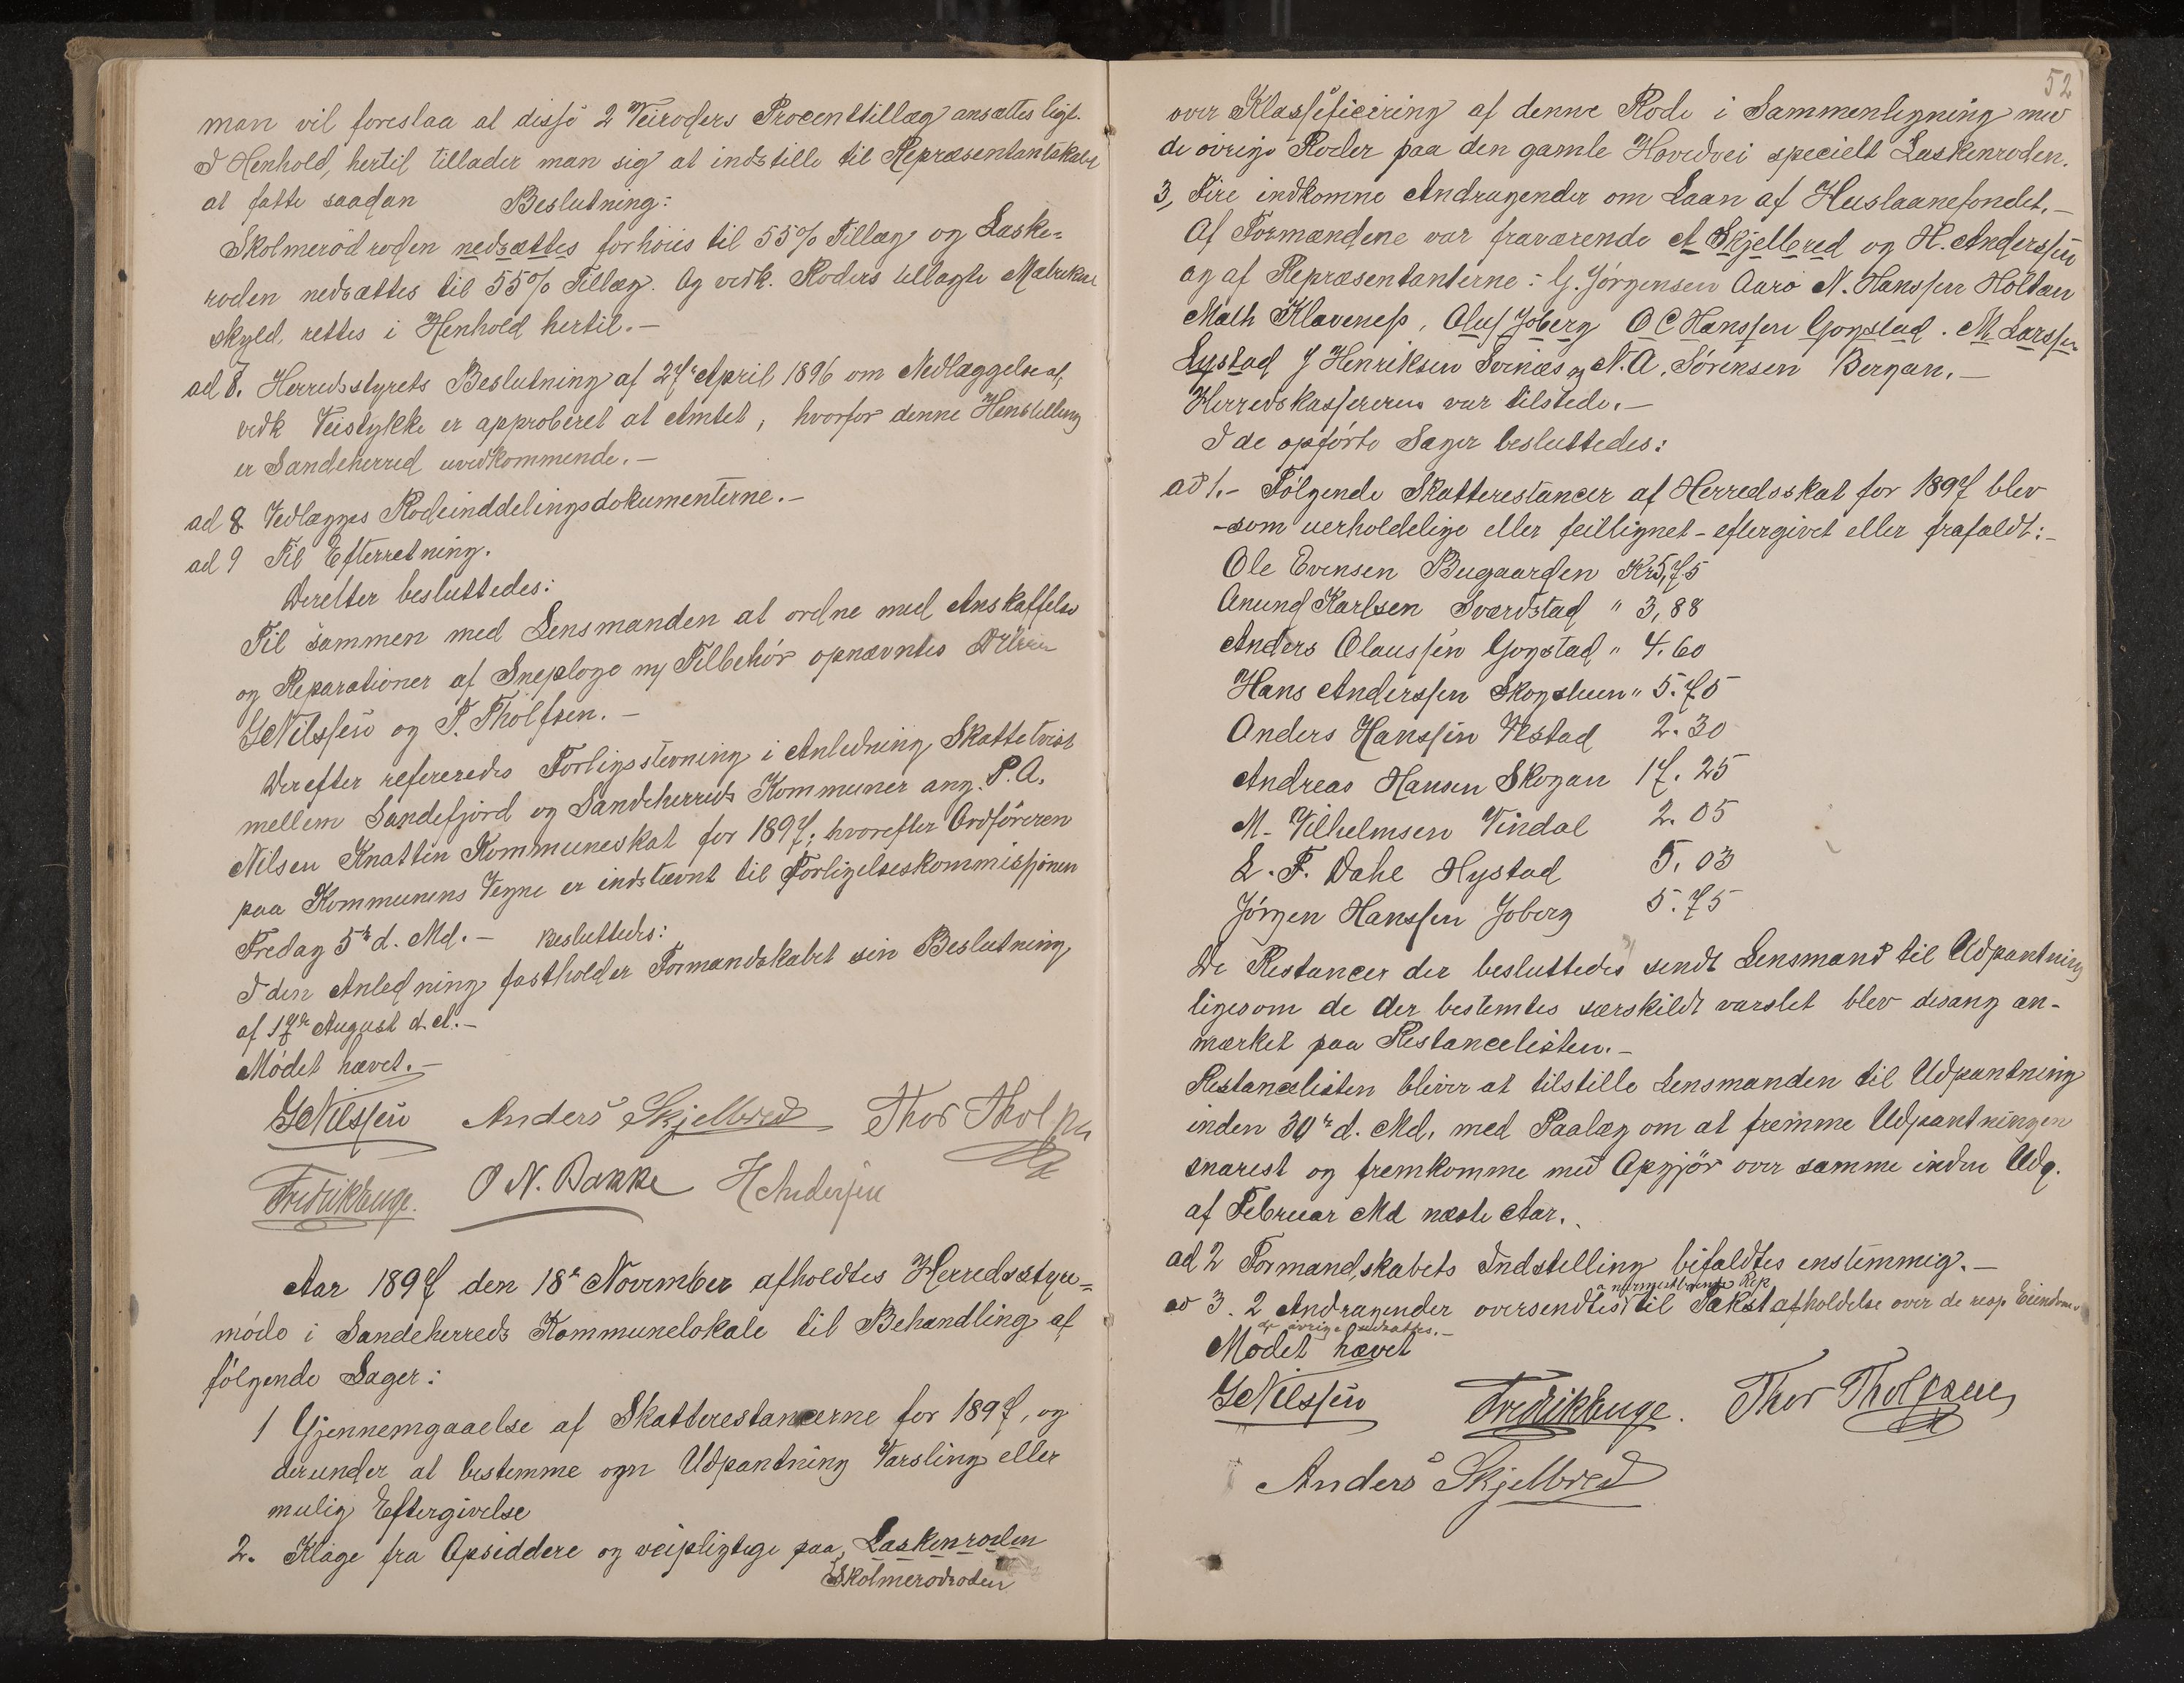 man vil foreslaa at disse 2 Veiroders Procenttillæg ansættes ligt.
I Henhold, hertil tillader man sig at indstille til Repræsentantskabet
at fatte saadan Beslutning:
Skolmerödroden nedsættes forhöies til 55% Tillæg og Laske-
roden nedsættes til 55% Tillæg. Og vedk. Roders tillagte Matrikul
skyld, rettes i Henhold hertil.-
ad 7. Herredsstyrets Beslutning af 27de April 1896 om Nedlæggelse af
vedk Veistykke er approberet at Amtet, hvorfor denne Henstilling
er Sandeherred uvedkommende.-
ad 8 Vedlægges Rodeinddelingsdokumenterne.-
ad 9 Til Efterretning.
Derefter besluttedes:
Til sammen med Lensmanden at ordne med Anskaffelse
og Reparationer af Sneploge og Tilbehör opnævntes
S Nilssen og T. Tholfsen.-
Derefter refereredes Forligsstevning i Anledning Skattetvist
mellem Sandefjord og Sandeherreds Kommuner ang. P.A.
Nilsen Knatten Kommuneskat for 1897; hvorefter Ordföreren
paa Kommunens Vegne er indstævnt til Forligelseskommissionen
Fredag 5te d. Md.- Besluttedes:
I den Anledning fastholder Formandskabet sin Beslutning
af 17de August d. A.-
Mödet hævet.-
S Nilssen Anders Skjelbred Thor Tholfsen
Fredrik Buge. O N. Bakke H Andersen
Aar 1897 den 18de November afholdtes Herredsstyre-
möde i Sandeherreds Kommunelokale til Behandling af
fölgende Sager:
1 Gjennemgaaelse af Skatterestancerne for 1897, og
derunder at bestemme om Udpantning Varsling eller
mulig Eftergivelse
2. Klage fra Opsiddere og veipligtige paa Laskenroden
Skolmerodroden
52
over Klassificering af denne Rode i Sammenligning med
de övrige Roder paa den gamle Hovedvei specielt Laskenroden.
3, Fire indkomne Andragender om Laan af Huslaanefondet.-
Af Formændene var fraværende A Skjellered og H. Anderssen
og af Repræsentanterne: G. Jörgensen Aarö N. Hanssen Holtan
Math Klaveness, Oluf Joberg O C Hanssen Gogstad. M. Larssen
Lystad J Henriksen Sornæs og N. A. Sörensen Bergan.-
Herredskassereren var tilstede.-
I de opförte Sager besluttedes:
ad 1.- Fölgende Skatterestancer af Herredsskat for 1897 blev
-som uerholdelige eller feillignet - eftergivet eller frafaldt:-
Ole Evensen Bugaarden Kr 5,75
Anund Karlsen Sværdstad " 3,88
Anders Olaussen Gogstad " 4.60
Hans Anderssen Skogsluen " 5.75
Anders Hanssen Vestad 2.30
Andreas Hansen Skogan 17.25
M. Vilhelmsen Vindal 2.05
L. F. Dahl Hystad 5.03
Jörgen Hanssen Joberg 5.75
De Restancer der besluttedes sendt Lensmand til Udpantning
ligesom de der bestemtes særskildt varslet blev desang an-
mærket paa Restancelisten.-
Restancelisten bliver at tilstille Lensmanden til Udpantning
inden 30te d. Md. med Paalæg om at fremme Udpantningen
snarest og fremkomme med Opgjör over samme inden Udg.
af Februar Md næste Aar.
ad 2 Formandskabets Indstilling bifaldtes enstemmig.-
nærmestboende Rep
ad 3. 2 Andragender oversendtes til Takstafholdelse over de resp Eiendomme
de övrige udsattes.-
Mödet hævet
S Nilssen Fredrik Buge. Thor Tholfsen
Anders Skjelbred